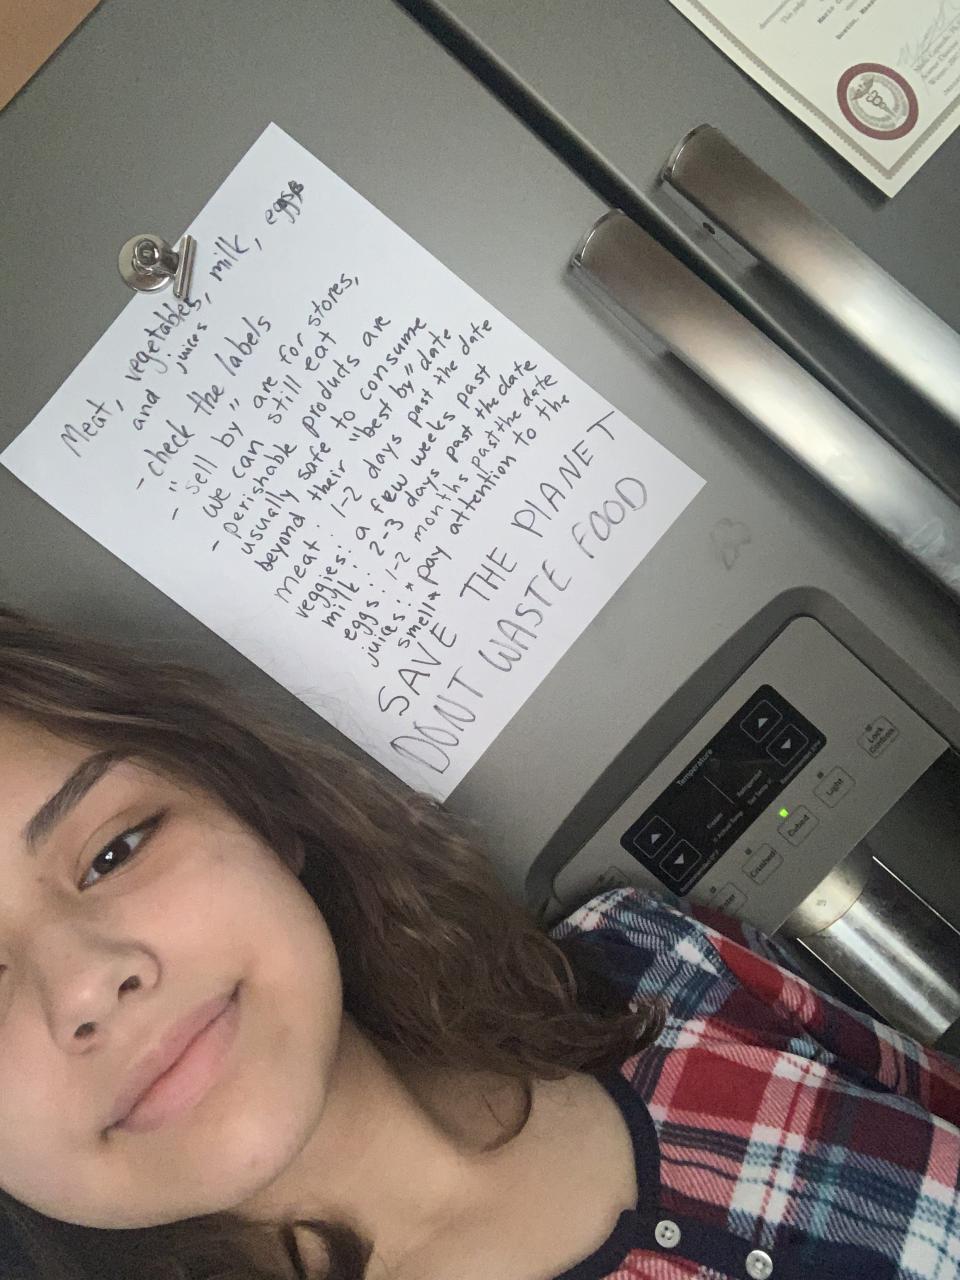 Meat, vegetables, milk, eggs
and juices
- check the labels
- "sell by" are for stores,
we can still eat
- perishable products are
usually safe to consume
beyond their "best by" date
meat: 1-2 days past the date
veggies: a few weeks past
milk: 2-3 days past the date
eggs: 1-2 months past the date
juices: *pay attention to the
smell*
SAVE THE PLANET
DONT WASTE FOOD
Temperature
Freezer
Refrigerator
Lock
Controls
Light
Cubed
Crushed